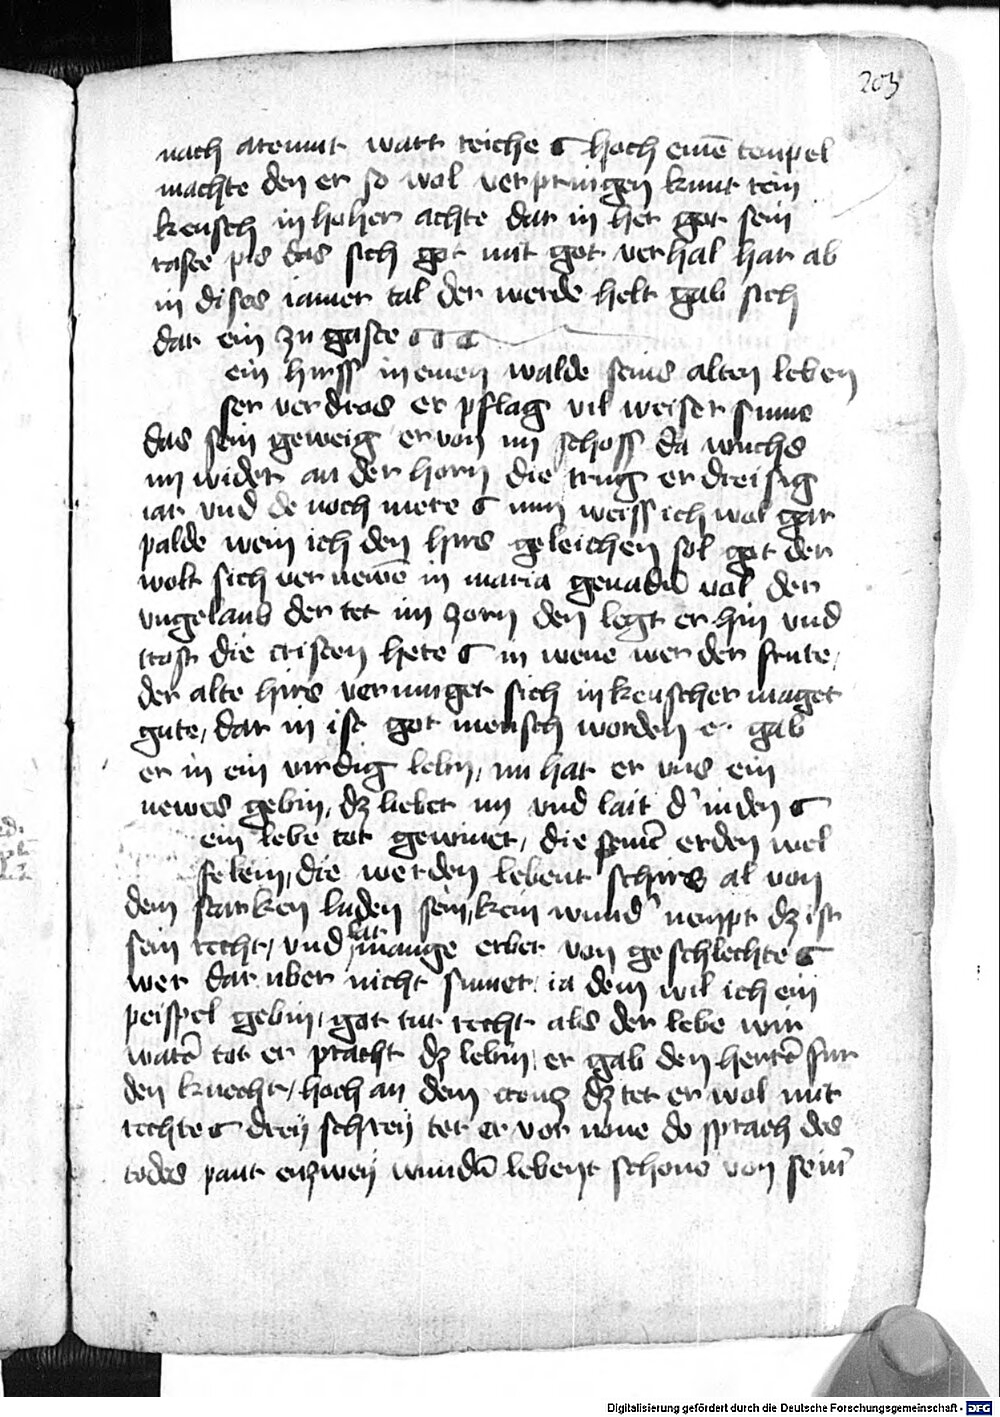 203
nach atemut wart reiche hoch einē tempel
machte den er so wol verpringen kunt rein
keusch in hoher achte dar in her got sein
raste pis das sich got mit got verhal har ab
in dises iamer tal der werde helt gab sich
dar ein zu gaste
ein hirss in einen walde seins alten leben
ser verdros er pflag vil weiser sinne
das sein geweig er von im schoss da wuchs
im wider an der horn die trug er dreisig
iar vnd de noch mere nun weiss ich wol gar
palde wein ich den hirs geleichen sol got der
wolt sich vernewē in maria genadn̄ vol der
vngelaub der tet im zorn den legt er hin vnd
trost die cristen hete in wene wer der frute,
der alte hirs verunget sich in keuscher maget
gute, dar in ist got mensch worden er gab
er in ein wirdig lebn, nu hat er vns ein
newes gebin, dz liebet im vnd lait d' inden
ein lebe tot gewinet, die seinē erden wel
felein, die werden lebent schirs al von
dem starken luden sein, kein wund' nempt dz ist
sein recht, vnd lat mange erber von geschlechte
wer dar uber nicht sinnet, ia dem wil ich ein
peispel gebin, got tut recht als der lebe wir
watē tot er pracht dz lebin, er gab den herrē fur
den knecht, hoch an dem creuz dz tet er wol mit
rechte dreÿ schreÿ tet er vor none do sprach des
todes pant enzweÿ wurdn̄ lebent schone von seim̄
Digitalisierung gefördert durch die Deutsche Forschungsgemeinschaft - DFG